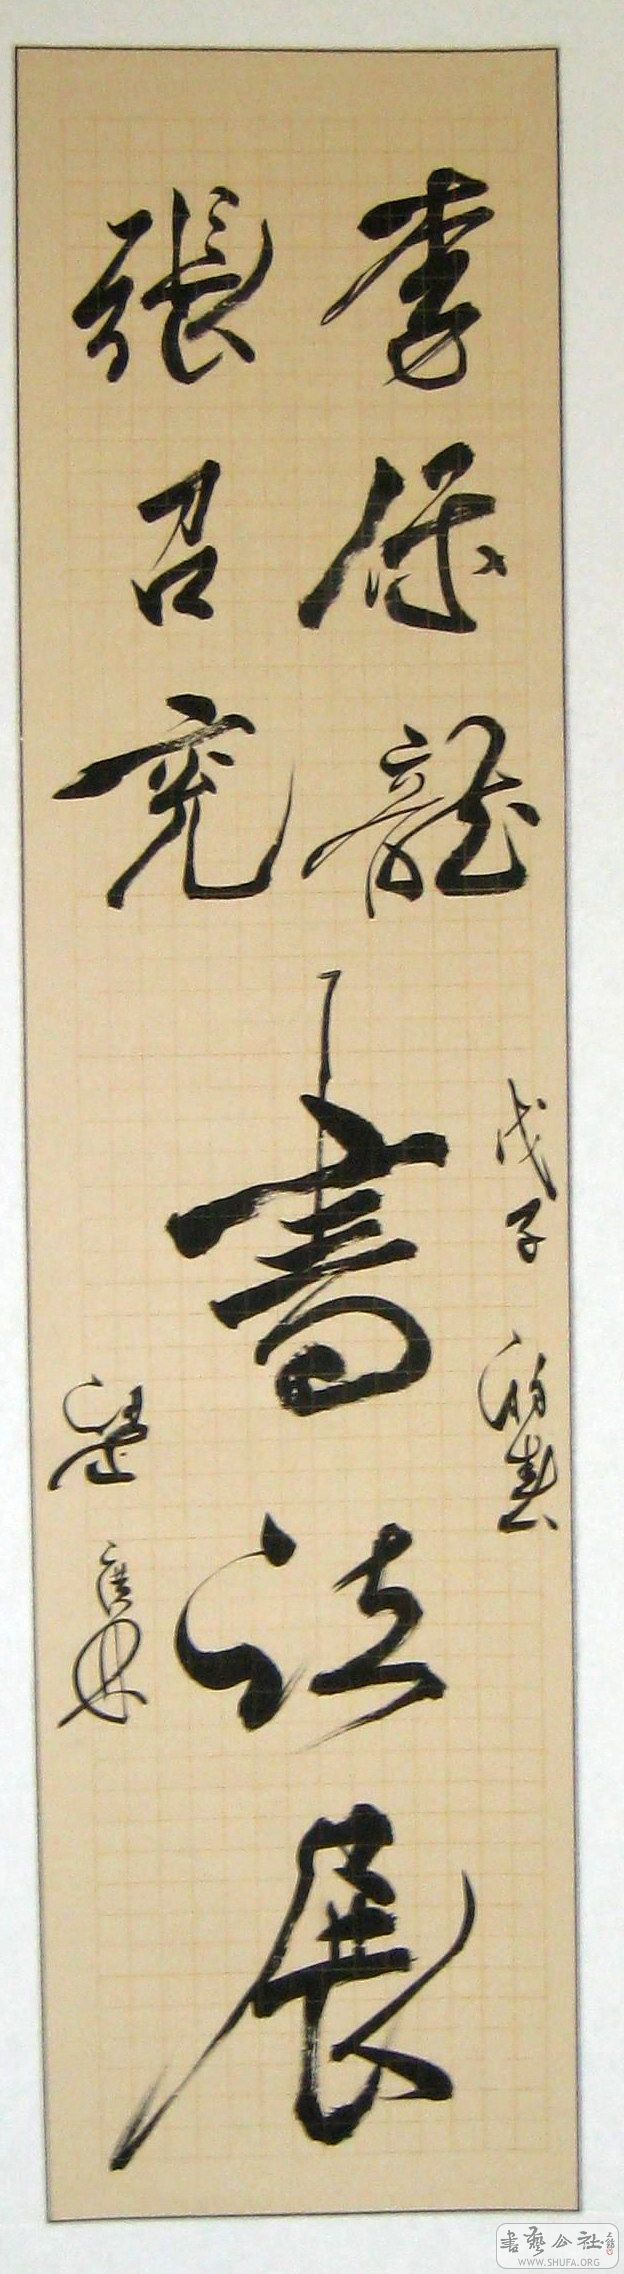 李保龍
張召亮
書法展
戊子
初春
書藝公社
WWW.SHUFA.ORG